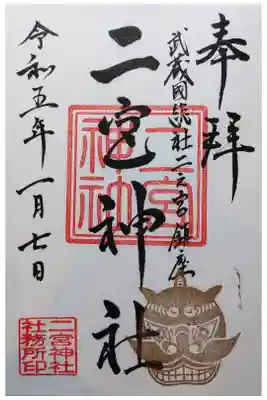 奉拝
武蔵國総社二之宮鎮座
二宮神社
二宮
神社
令和五年一月七日
二宮神社
社務所印